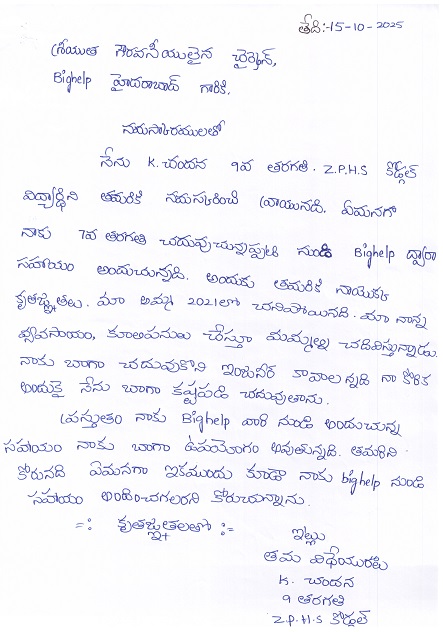 తేది:-15-10-2025
శ్రీయుత గౌరవనీయులైన ఛైర్మెన్,
Bighelp హైదరాబాద్ గారికి,
నమస్కారములతో
నేను K. చందన 9వ తరగతి. Z.P.H.S కోడ్గల్
విద్యార్థిని తమరికి నమస్కరించి వ్రాయునది. ఏమనగా
నాకు 7వ తరగతి చదువుచున్నప్పటి నుండి Bighelp ద్వారా
సహాయం అందుచున్నది. అందుకు తమరికి నాయొక్క
కృతజ్ఞతలు. మా అమ్మ 2021లో చనిపోయినది. మా నాన్న
వ్యవసాయం, కూలిపనులు చేస్తూ మమ్మల్ని చదివిస్తున్నాడు.
నాకు బాగా చదువుకొని ఇంజనీర్ కావాలన్నది నా కోరిక
అందుకై నేను బాగా కష్టపడి చదువుతాను.
ప్రస్తుతం నాకు Bighelp వారి నుండి అందుచున్న
సహాయం నాకు బాగా ఉపయోగం అవుతున్నది. తమరిని
కోరునది ఏమనగా ఇకముందు కూడా నాకు bighelp నుండి
సహాయం అందించగలరని కోరుచున్నాను.
=: కృతజ్ఞతలతో :=
ఇట్లు
తమ విధేయురాలు
K. చందన
9 తరగతి
Z.P.H.S కోడ్గల్